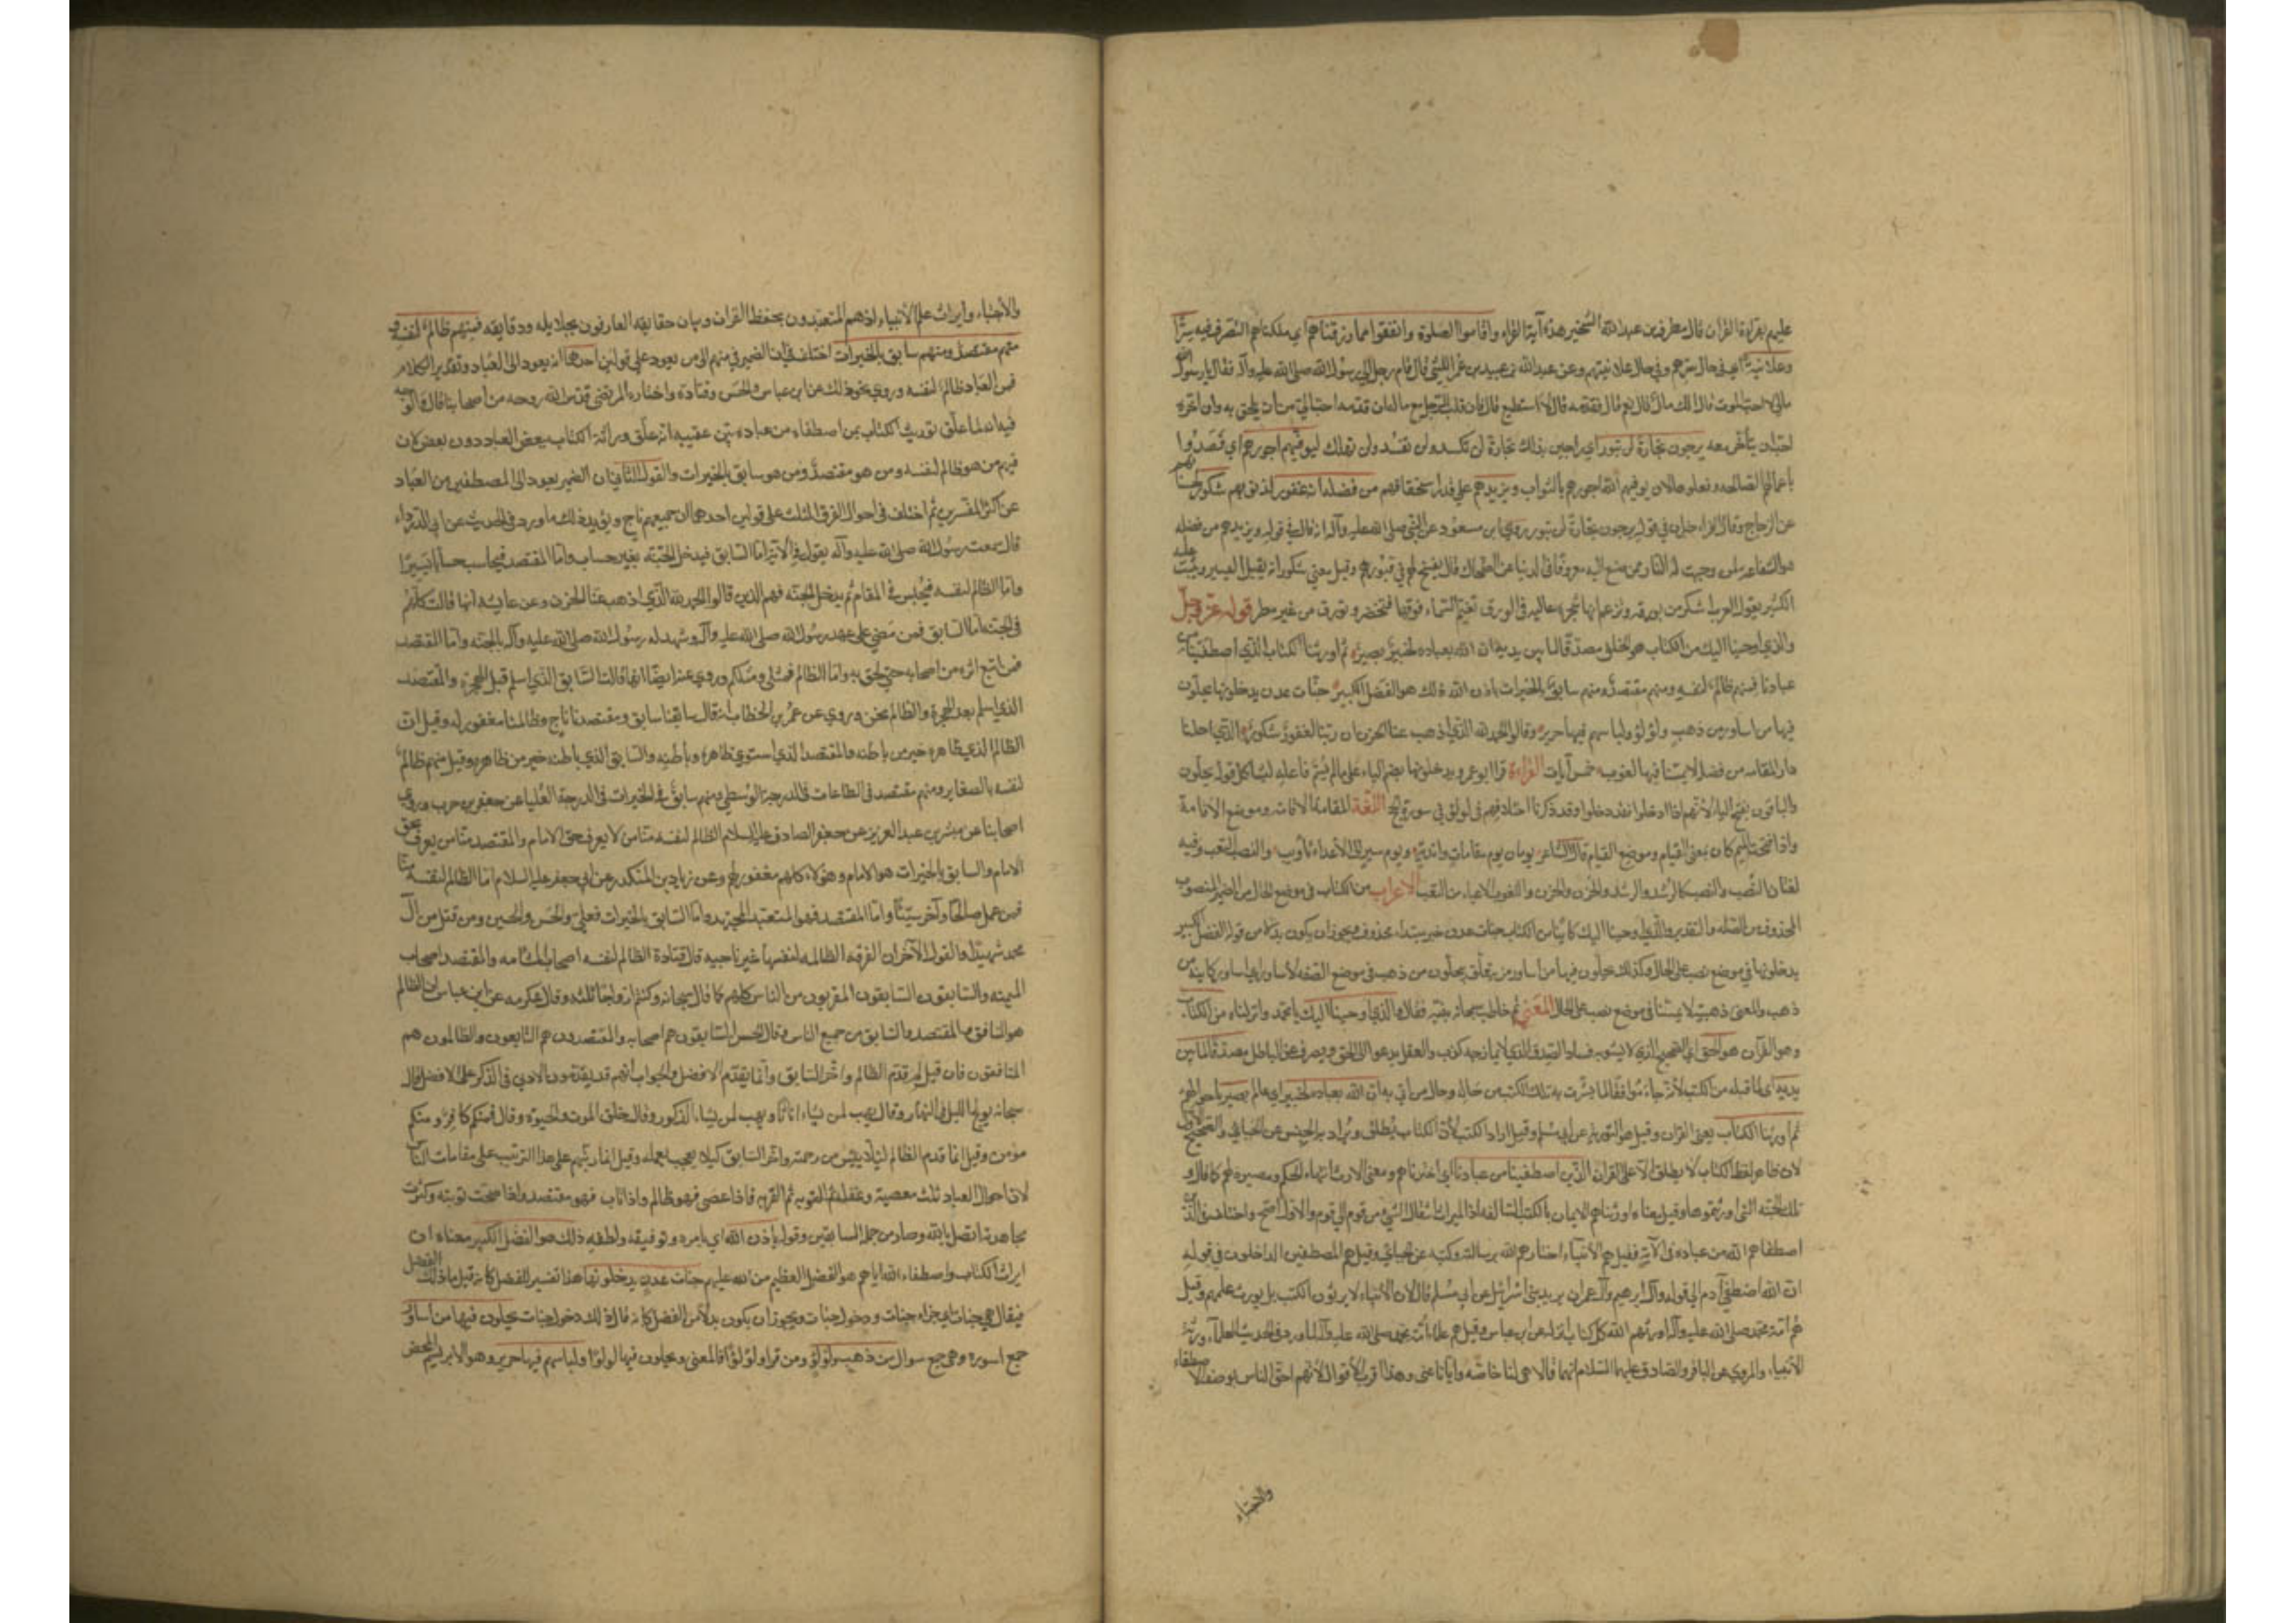 عليهم بقراءة القران قال مطرف بن عبد الله الشخير هذه آية القراء واقاموا الصلوة وانفقوا مما رزقناهم اي ملكناهم التصرف فيه سرًّا
وعلانية اي في حال سرهم وفي حال علانيتهم وعن عبد الله بن عبيد بن عمر الليثي قال قام رجل الي رسول الله صلى الله عليه وآله فقال يا رسول الله
مالي لا احب الموت قال الك مال قال نعم قال فقدمه قال لا استطيع قال فان قلب الرجل مع ماله ان قدمه احب ان يلحق به وان اخره
احب ان يتأخر معه يرجون تجارة لن تبور اي راجين بذلك تجارة لن تكسد ولن تفسد ولن تهلك ليوفيهم اجورهم اي قصدوا
باعمالهم الصالحة وفعلوها لان يوفيهم الله اجورهم بالثواب ويزيدهم علي قدر استحقاقهم من فضله انه غفور لذنوبهم شكور لحسناتهم
عن الزجاج وقال الفراء خبران في قوله يرجون تجارة لن تبور روي ابن مسعود عن النبي صلى الله عليه وآله انه قال في قوله ويزيدهم من فضله
هو الشفاعة لمن وجبت له النار ممن صنع اليه معروفا في الدنيا وعن الضحاك قال يفسح لهم في قبورهم وقيل معني شكور انه يقبل اليسير ويثيب عليه
الكثير يقول العرب اشكر من بروقه وتزعم انها شجرة عاليه في الورق تغيم السماء فوقها فتخضر وتورق من غير مطر قوله عز وجل
والذي اوحينا اليك من الكتاب هو الحق مصدقًا لما بين يديه ان الله بعباده لخبير بصير، ثم اورثنا الكتاب الذين اصطفينا من
عبادنا فمنهم ظالم لنفسه ومنهم مقتصد ومنهم سابق بالخيرات باذن الله ذلك هو الفضل الكبير، جنّات عدن يدخلونها يحلون
فيها من اساور من ذهب ولؤلؤ ولباسهم فيها حرير، وقالوا الحمد لله الذي اذهب عنا الحزن ان ربنا لغفور شكور، الذي احلنا
دار المقامه من فضله لا يمسنا فيها نصب ولا يمسنا فيها لغوب، خمس آيات القراءة قرا ابو عمرو يدخلونها بضم الياء علي ما لم يسم فاعله ليشاكل قوله يحلون
والباقون بفتح الياء لانهم اذا ادخلوا فقد دخلوا وقد ذكرنا اختلافهم في لؤلؤ في سورة الحج اللغة المقامة الاقامة وموضع الاقامة
واذا فتحت الميم كان بمعني القيام وموضع القيام قال الشاعر يومان يوم مقامات واندية، ويوم سير الي الاعداء تأويب، والنصب التعب وفيه
لغتان النُصب والنصب كالرُشد والرشد والحُزن والحزن واللغوب الاعياء من التعب الاعراب من الكتاب في موضع الحال من الضمير المنصوب
المحذوف من الصله والتقدير والذي اوحينا اليك كائنا من الكتاب جنات عدن خبر مبتداء محذوف ويجوز ان يكون بدلا من قوله الفضل الكبير
يدخلونها في موضع نصب علي الحال وكذلك يحلون فيها من اساور من يتعلق بيحلون من ذهب في موضع الصفه لاساور اي اساور كاينة من
ذهب والمعني ذهبية لا يمسنا في موضع نصب علي الحال المعني ثم خاطب سبحانه نبيه فقال والذي اوحينا اليك يا محمد وانزلناه من الكتاب
وهو القرآن هو الحق اي الصحيح الذي لا يشوبه فساد والصدق الذي لا يمازجه كذب والعقل يدعو الي الحق ويصرف عن الباطل مصدقًا لما بين
يديه اي لما قبله من الكتب لانه جاء موافقًا لما بشرت به تلك الكتب من حاله وحال من اتي به ان الله بعباده لخبير اي عالم بصير باحوالهم
ثم اورثنا الكتاب يعني القرآن وقيل هو التورية عن ابي مسلم وقيل اراد الكتب لأن الكتاب يُطلق ويُراد به الجنس عن الجبائي والصحيح الاول
لان ظاهر لفظ الكتاب لا يطلق الا علي القرآن الذين اصطفينا من عبادنا اي اخترناهم ومعني الارث انتهاء الحكم ومصيره لهم كما قال و
تلك الجنه التي اورثتموها وقيل معناه اورثناهم الايمان بالكتب السالفه اذ الميراث انتقال الشيء من قوم الي قوم والاول اصح واختلف في الذين
اصطفاهم الله من عباده في الآية فقيل هم الأنبياء اختارهم الله برسالته وكتبه عن الجبائي وقيل هم المصطفين الداخلون في قوله
ان الله اصطفي آدم الي قوله وآل ابرهيم وآل عمران يريد بني اسرائيل عن ابي مسلم قال لان الأنبياء لا يرثون الكتب بل يورث علمهم وقيل
هم امة محمد صلى الله عليه وآله اورثهم الله كل كتاب انزله عن ابن عباس وقيل هم علماء امة محمد صلى الله عليه وآله لما ورد في الحديث العلماء ورثة
الأنبياء، والمروي عن الباقر والصادق عليهما السلام انهما قالا هي لنا خاصّة وايانا عني وهذا اقرب الاقوال لأنهم احق الناس بوصف الاصطفاء
والاجتباء
والاجتباء وايراث علم الأنبياء اذ هم المتعبدون بحفظ القران وبيان حقايقه العارفون بجلايله ودقايقه فمنهم ظالم لنفسه و
منهم مقتصد ومنهم سابق بالخيرات اختلف في ان الضمير في منهم الي من يعود علي قولين احدهما انه يعود الي العباد وتقدير الكلام
فمن العباد ظالم لنفسه وروي نحو ذلك عن ابن عباس والحسن وقتادة واختاره المرتضي قدس الله روحه من أصحابنا قال والوجه
فيه انه لما علّق توريث الكتاب بمن اصطفاه من عباده بين عقيبه انه علّق وراثة الكتاب ببعض العباد دون بعض لان
فيهم من هو ظالم لنفسه ومن هو مقتصد ومن هو سابق بالخيرات والقول الثاني ان الضمير يعود الي المصطفين من العباد
عن اكثر المفسرين ثم اختلف في احوال الفرق الثلث علي قولين احدهما ان جميعهم ناج ويؤيد ذلك ما ورد في الحديث عن ابي الدرداء
قال سمعت رسول الله صلى الله عليه وآله يقول في الآية اما السابق فيدخل الجنه بغير حساب واما المقتصد فيحاسب حسابًا يسيرًا
واما الظالم لنفسه فيحبس في المقام ثم يدخل الجنة فهم الذين قالوا الحمد لله الذي اذهب عنا الحزن وعن عايشه انها قالت كلهم
في الجنة اما السابق فمن مضي علي عهد رسول الله صلى الله عليه وآله وشهد له رسول الله صلى الله عليه وآله بالجنه واما المقتصد
فمن اتبع اثره من اصحابه حتي لحق به واما الظالم فمثلي ومثلكم وروي عنها ايضًا انها قالت السابق الذي اسلم قبل الهجرة والمقتصد
الذي اسلم بعد الهجرة والظالم نحن وروي عن عمر بن الخطاب انه قال سابقنا سابق ومقتصدنا ناج وظالمنا مغفور له وقيل ان
الظالم الذي ظاهره خير من باطنه والمقتصد الذي استوي ظاهره وباطنه والسابق الذي باطنه خير من ظاهره وقيل منهم ظالم
لنفسه بالصغاير ومنهم مقتصد في الطاعات في الدرجة الوسطي ومنهم سابق في الخيرات في الدرجة العُليا عن جعفر بن حرب وروي
اصحابنا عن ميسر بن عبد العزيز عن جعفر الصادق عليه السلام الظالم لنفسه منا من لا يعرف حق الامام والمقتصد منا من يعرف حق
الامام والسابق بالخيرات هو الامام وهؤلاء كلهم مغفور لهم وعن زياد بن المنكدر عن ابي جعفر عليه السلام اما الظالم لنفسه منا
فمن عمل صالحًا وآخر سيئًا واما المقتصد فهو المتعبد المجتهد واما السابق بالخيرات فعلي والحسن والحسين ومن قتل من آل
محمد شهيدًا والقول الآخر ان الفرقه الظالمه لنفسها غير ناجيه قال قتادة الظالم لنفسه اصحاب المشأمه والمقتصد اصحاب
الميمنه والسابقون السابقون المقربون من الناس كلهم كما قال سبحانه وكنتم ازواجًا ثلثه وقال عكرمه عن ابن عباس ان الظالم
هو المنافق والمقتصد والسابق من جميع الناس وقال الحسن السابقون هم الصحابه والمقتصدون هم التابعون والظالمون هم
المنافقون فان قيل لم قدم الظالم واخر السابق وانما يقدم الافضل فالجواب انهم قد يقدمون الادني في الذكر علي الافضل قال
سبحانه يولج الليل في النهار وقال يهب لمن يشاء اناثًا ويهب لمن يشاء الذكور وقال خلق الموت والحيوة وقال فمنكم كافر ومنكم
مؤمن وقيل انما قدم الظالم لئلا ييئس من رحمته واخر السابق كيلا يعجب بعمله وقيل انما رتبهم علي هذا الترتيب علي مقامات الناس
لان احوال العباد ثلث معصية وغفلة ثم التوبه ثم القربه فاذا عصي فهو ظالم واذا تاب فهو مقتصد واذا صحت توبته وكثرت
مجاهدته اتصل بالله وصار من جملة السابقين وقوله باذن الله اي بامره وتوفيقه ولطفه ذلك هو الفضل الكبير معناه ان
ايراث الكتاب واصطفاء الله اياهم هو الفضل العظيم من الله عليهم جنات عدن يدخلونها هذا تفسير للفضل كانه قيل ما ذلك الفضل
فيقال هي جنات اي جزاء جنات ودخول جنات ويجوز ان يكون بدلا من الفضل كانه قال ذلك دخول جنات يحلون فيها من اساور
جمع اسورة وهي جمع سوار من ذهب ولؤلؤ ومن قرا ولؤلؤًا فالمعني ويحلون فيها لؤلؤا ولباسهم فيها حرير وهو الابريسم المحض